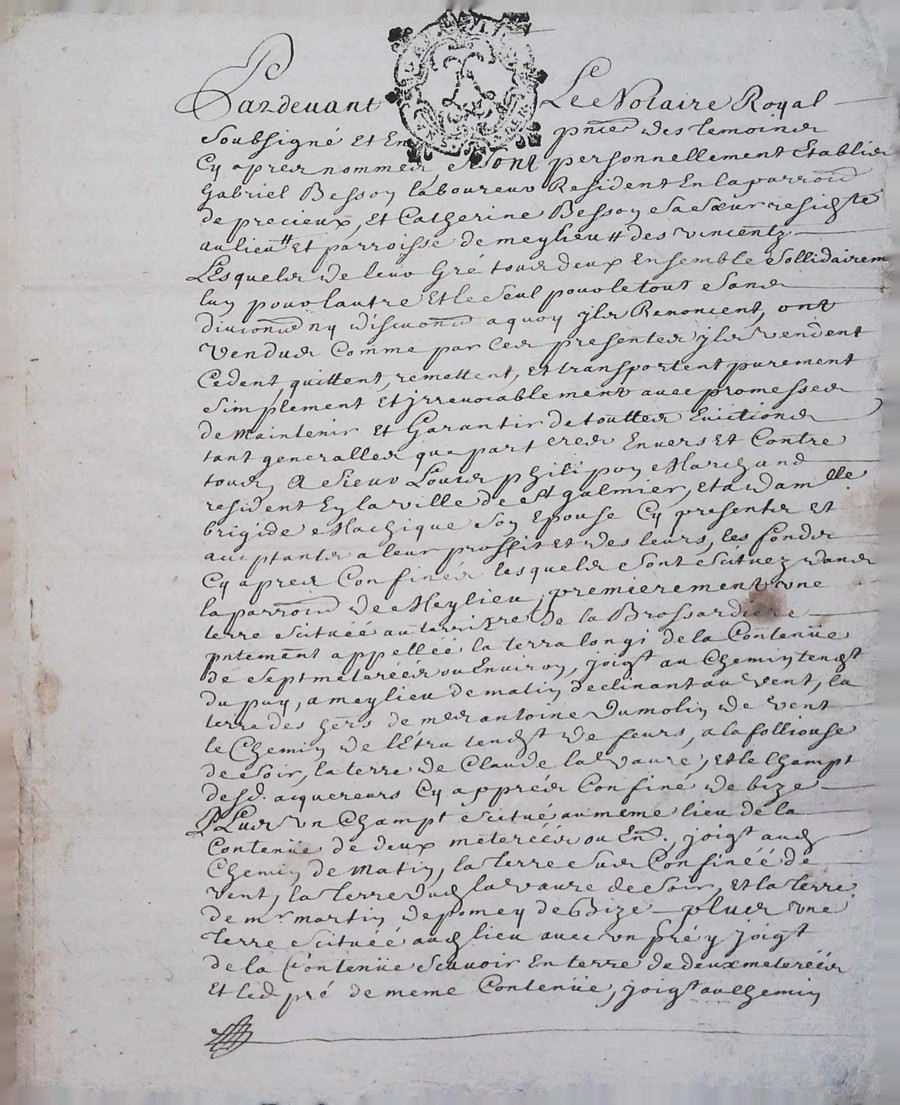 Pardevant Le Notaire Royal
Soubsigné et En pnce des temoins
Cy apres nommes, Sont personnellement Establis
Gabriel Besson laboureur Resident En la parroisse
de precieux, et Catherine Besson Sa Sœur residte
au lieu et parroisse de meylieu des vincents
Lesquels de leur Gré tous deux Ensemble Sollidairemt
lun pour lautre Et le Seul pour le tout Sans
division ny discution a quoy jls Renoncent, ont
vendus Comme par Ces presentes jls vendent
Cedent, quittent, remettent, et transportent purement
Simplement Et jrrevocablement avec promesses
de Maintenir et Garantir de touttes Evictions
tant generalles que particres Envers et Contre
tous, A Sieur Louis philipon Marchand
resident En la ville de St galmier, et a damlle
brigide Son Epouse Cy presents et
acceptants a leur proffit et des leurs, les fonds
Cy apres Confinés lesquels Sont Scituez dans
la parroisse de Meylieu, premierement une
terre Scituéé au territre de la Brossardiere
pntement appelléé la terra longi de la Contenüe
de Sept meteréés ou Environ, joigt au Chemin tendt
du puy, a meylieu de matin declinant au vent, la
terre des hers de mes antoine Dumolin de vent
le Chemin de lEtra tendt de feurs, a la folliouse
de Soir, la terre de Claude la vaure, et le Champt
desd. acquereurs Cy apprés Confiné de bize
PLus vn Champt Scitué au meme lieu de la
Contenüe de deux meteréés ou Enon, joigt aud
Chemin de Matin, la terre Sus Confinéé de
vent, la terre dud la vaure de Soir, et la terre
de mr martin de pomey de Bize plus vne
terre Scituéé aud lieu avec vn pré y joigt
de la Contenüe Scavoir En terre de deux meteréés
Et led pré de meme Contenüe, joigt au Chemin